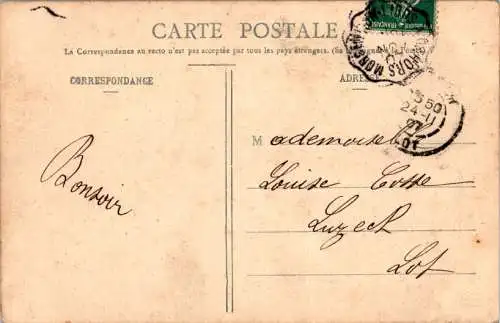 CARTE POSTALE
La Correspondance au recto n'est pas acceptée par tous les pays étrangers. (Se
CORRESPONDANCE
ADRES
HORS MORCEN
50
24-11
LOT
Mademoiselle
Louise Cosse
Luzech
Lot
Bonsoir